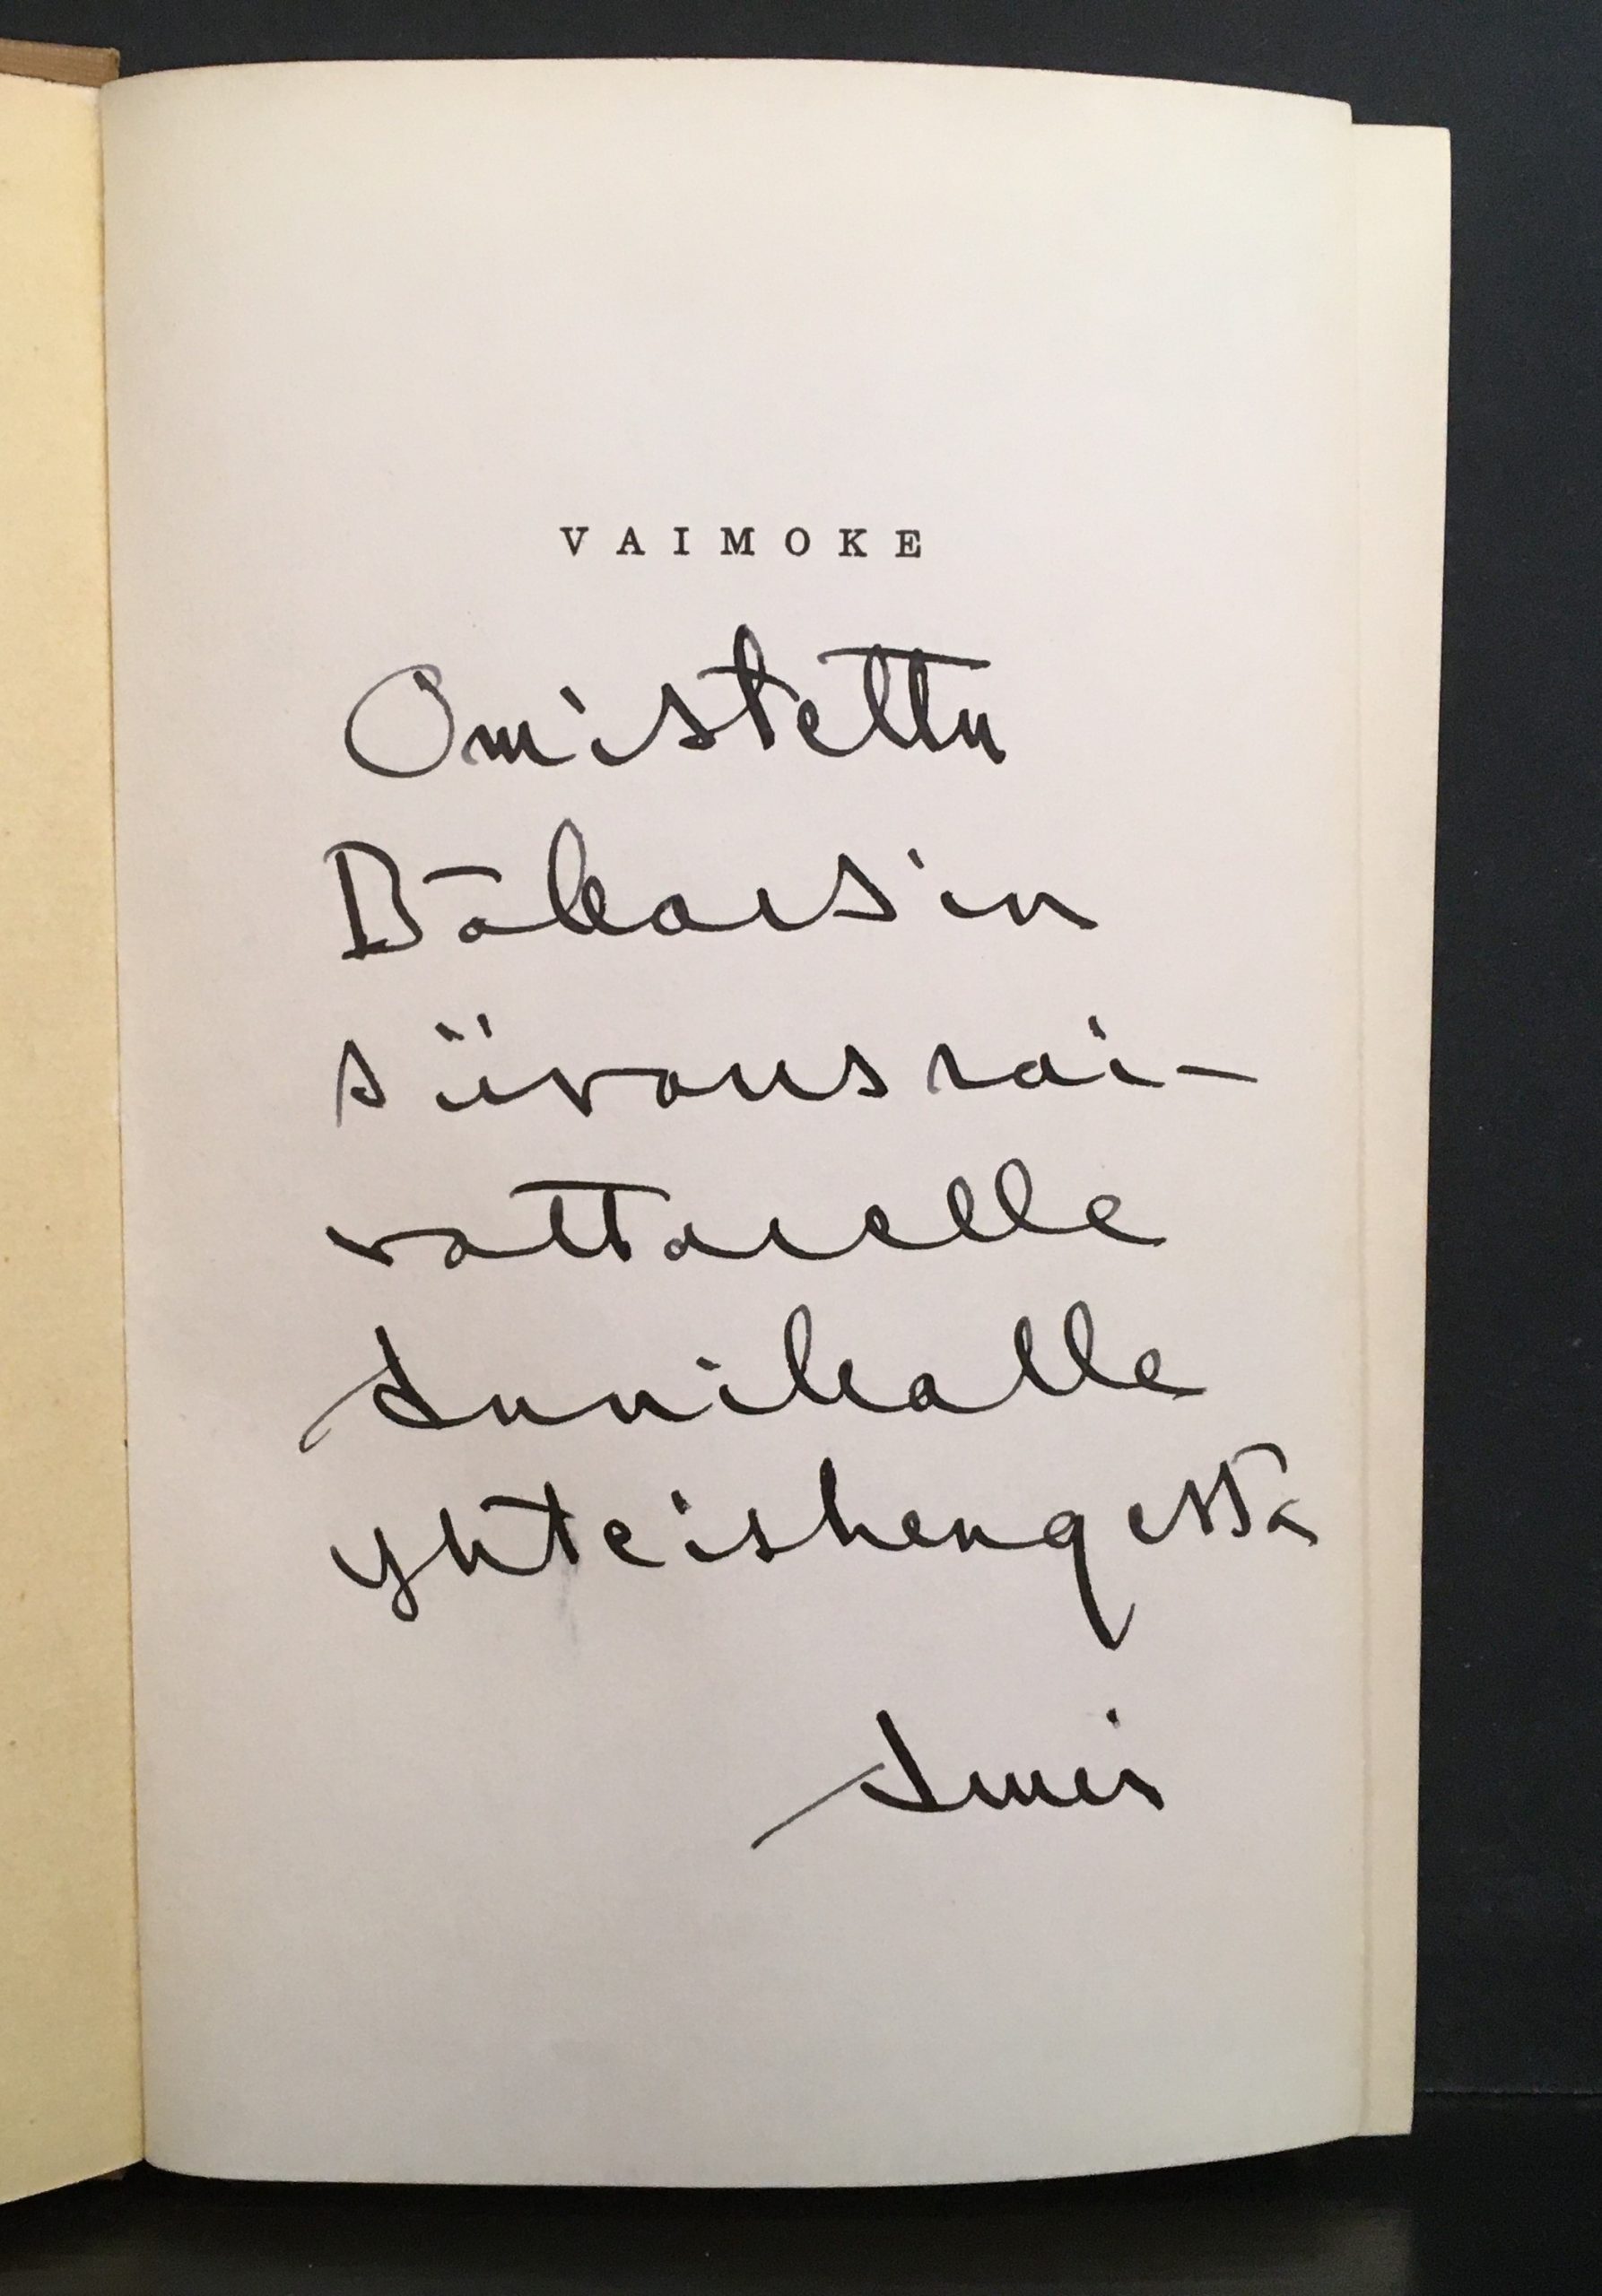 VAIMOKE
Omistettu
Bökarsin
siivousrai-
vottarelle
Annikalle
yhteishengestä